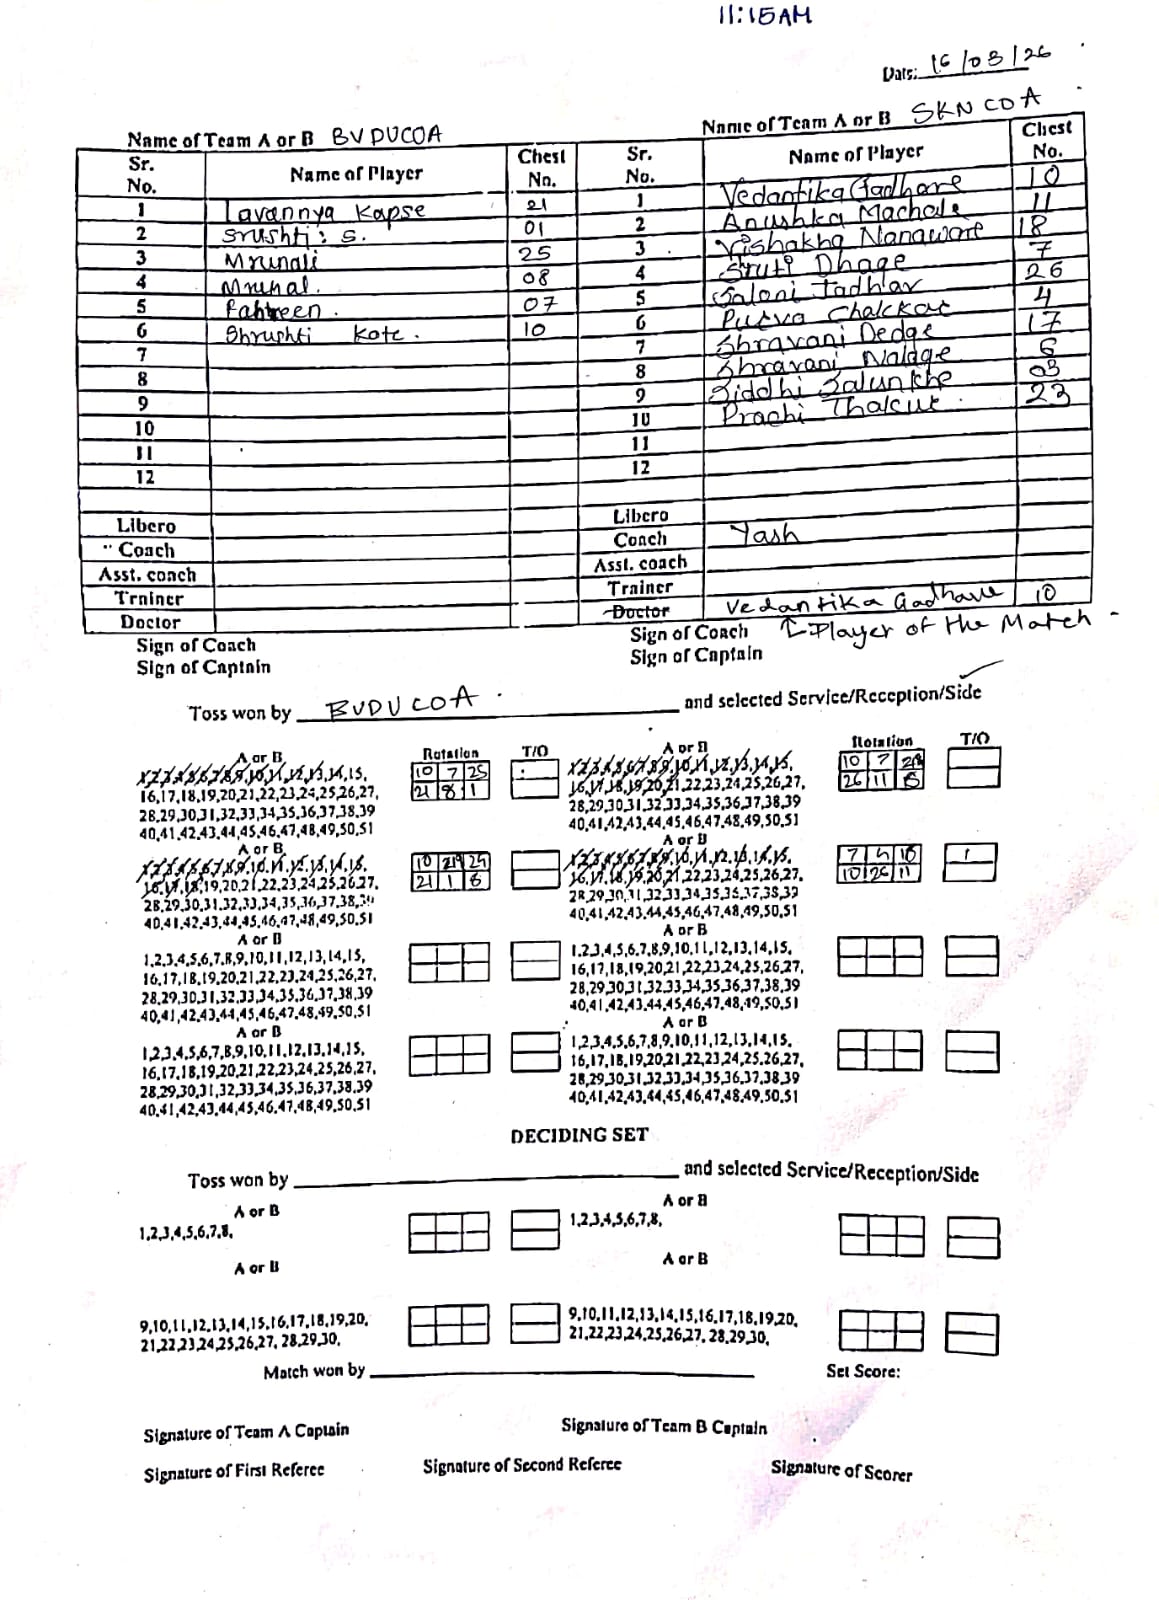 11:15AM
Date: 16/03/26
Name of Team A or B BVDUCOA
Name of Team A or B SKNCOA
Sr. No. Name of Player Chest No. Sr. No. Name of Player Chest No.
1 Lavannya Kapse 21 1 Vedantika Gadhave 10
2 Srushti S. 01 2 Anushka Machale 11
3 Mrunali 25 3 Vishakha Nanaware 18
4 Mrunal. 08 4 Sruti Dhage 7
5 07 5 Saloni Jadhav 26
6 Shrushti Kote. 10 6 Purva 4
7 7 Shravani Dedge 17
8 8 Shravani Nalage 6
9 9 Siddhi Salunkhe 03
10 10 Prachi Thakur. 23
11 11
12 12
Libero Libero
Coach Coach Yash
Asst. coach Asst. coach
Trainer Trainer
Doctor Doctor Vedantika Gadhave 10
Sign of Coach Sign of Coach ↑Player of the Match
Sign of Captain Sign of Captain
Toss won by BVDUCOA and selected Service/Reception/Side
A or B Rotation T/O A or B Rotation T/O
1,2,3,4,5,6,7,8,9,10,11,12,13,14,15, 10 7 25 1,2,3,4,5,6,7,8,9,10,11,12,13,14,15, 10 7
16,17,18,19,20,21,22,23,24,25,26,27, 21 8 1 16,17,18,19,20,21,22,23,24,25,26,27, 26 11
28,29,30,31,32,33,34,35,36,37,38,39 28,29,30,31,32,33,34,35,36,37,38,39
40,41,42,43,44,45,46,47,48,49,50,51 40,41,42,43,44,45,46,47,48,49,50,51
A or B A or B
1,2,3,4,5,6,7,8,9,10,11,12,13,14,15, 10 1,2,3,4,5,6,7,8,9,10,11,12,13,14,15, 7 4 18 1
16,17,18,19,20,21,22,23,24,25,26,27, 21 1 8 16,17,18,19,20,21,22,23,24,25,26,27, 10 26 11
28,29,30,31,32,33,34,35,36,37,38,39 28,29,30,31,32,33,34,35,36,37,38,39
40,41,42,43,44,45,46,47,48,49,50,51 40,41,42,43,44,45,46,47,48,49,50,51
A or B A or B
1,2,3,4,5,6,7,8,9,10,11,12,13,14,15, 1,2,3,4,5,6,7,8,9,10,11,12,13,14,15,
16,17,18,19,20,21,22,23,24,25,26,27, 16,17,18,19,20,21,22,23,24,25,26,27,
28,29,30,31,32,33,34,35,36,37,38,39 28,29,30,31,32,33,34,35,36,37,38,39
40,41,42,43,44,45,46,47,48,49,50,51 40,41,42,43,44,45,46,47,48,49,50,51
A or B A or B
1,2,3,4,5,6,7,8,9,10,11,12,13,14,15, 1,2,3,4,5,6,7,8,9,10,11,12,13,14,15,
16,17,18,19,20,21,22,23,24,25,26,27, 16,17,18,19,20,21,22,23,24,25,26,27,
28,29,30,31,32,33,34,35,36,37,38,39 28,29,30,31,32,33,34,35,36,37,38,39
40,41,42,43,44,45,46,47,48,49,50,51 40,41,42,43,44,45,46,47,48,49,50,51
DECIDING SET
Toss won by and selected Service/Reception/Side
A or B A or B
1,2,3,4,5,6,7,8, 1,2,3,4,5,6,7,8,
A or B A or B
9,10,11,12,13,14,15,16,17,18,19,20, 9,10,11,12,13,14,15,16,17,18,19,20,
21,22,23,24,25,26,27, 28,29,30, 21,22,23,24,25,26,27, 28,29,30,
Match won by Set Score:
Signature of Team A Captain Signature of Team B Captain
Signature of First Referee Signature of Second Referee Signature of Scorer